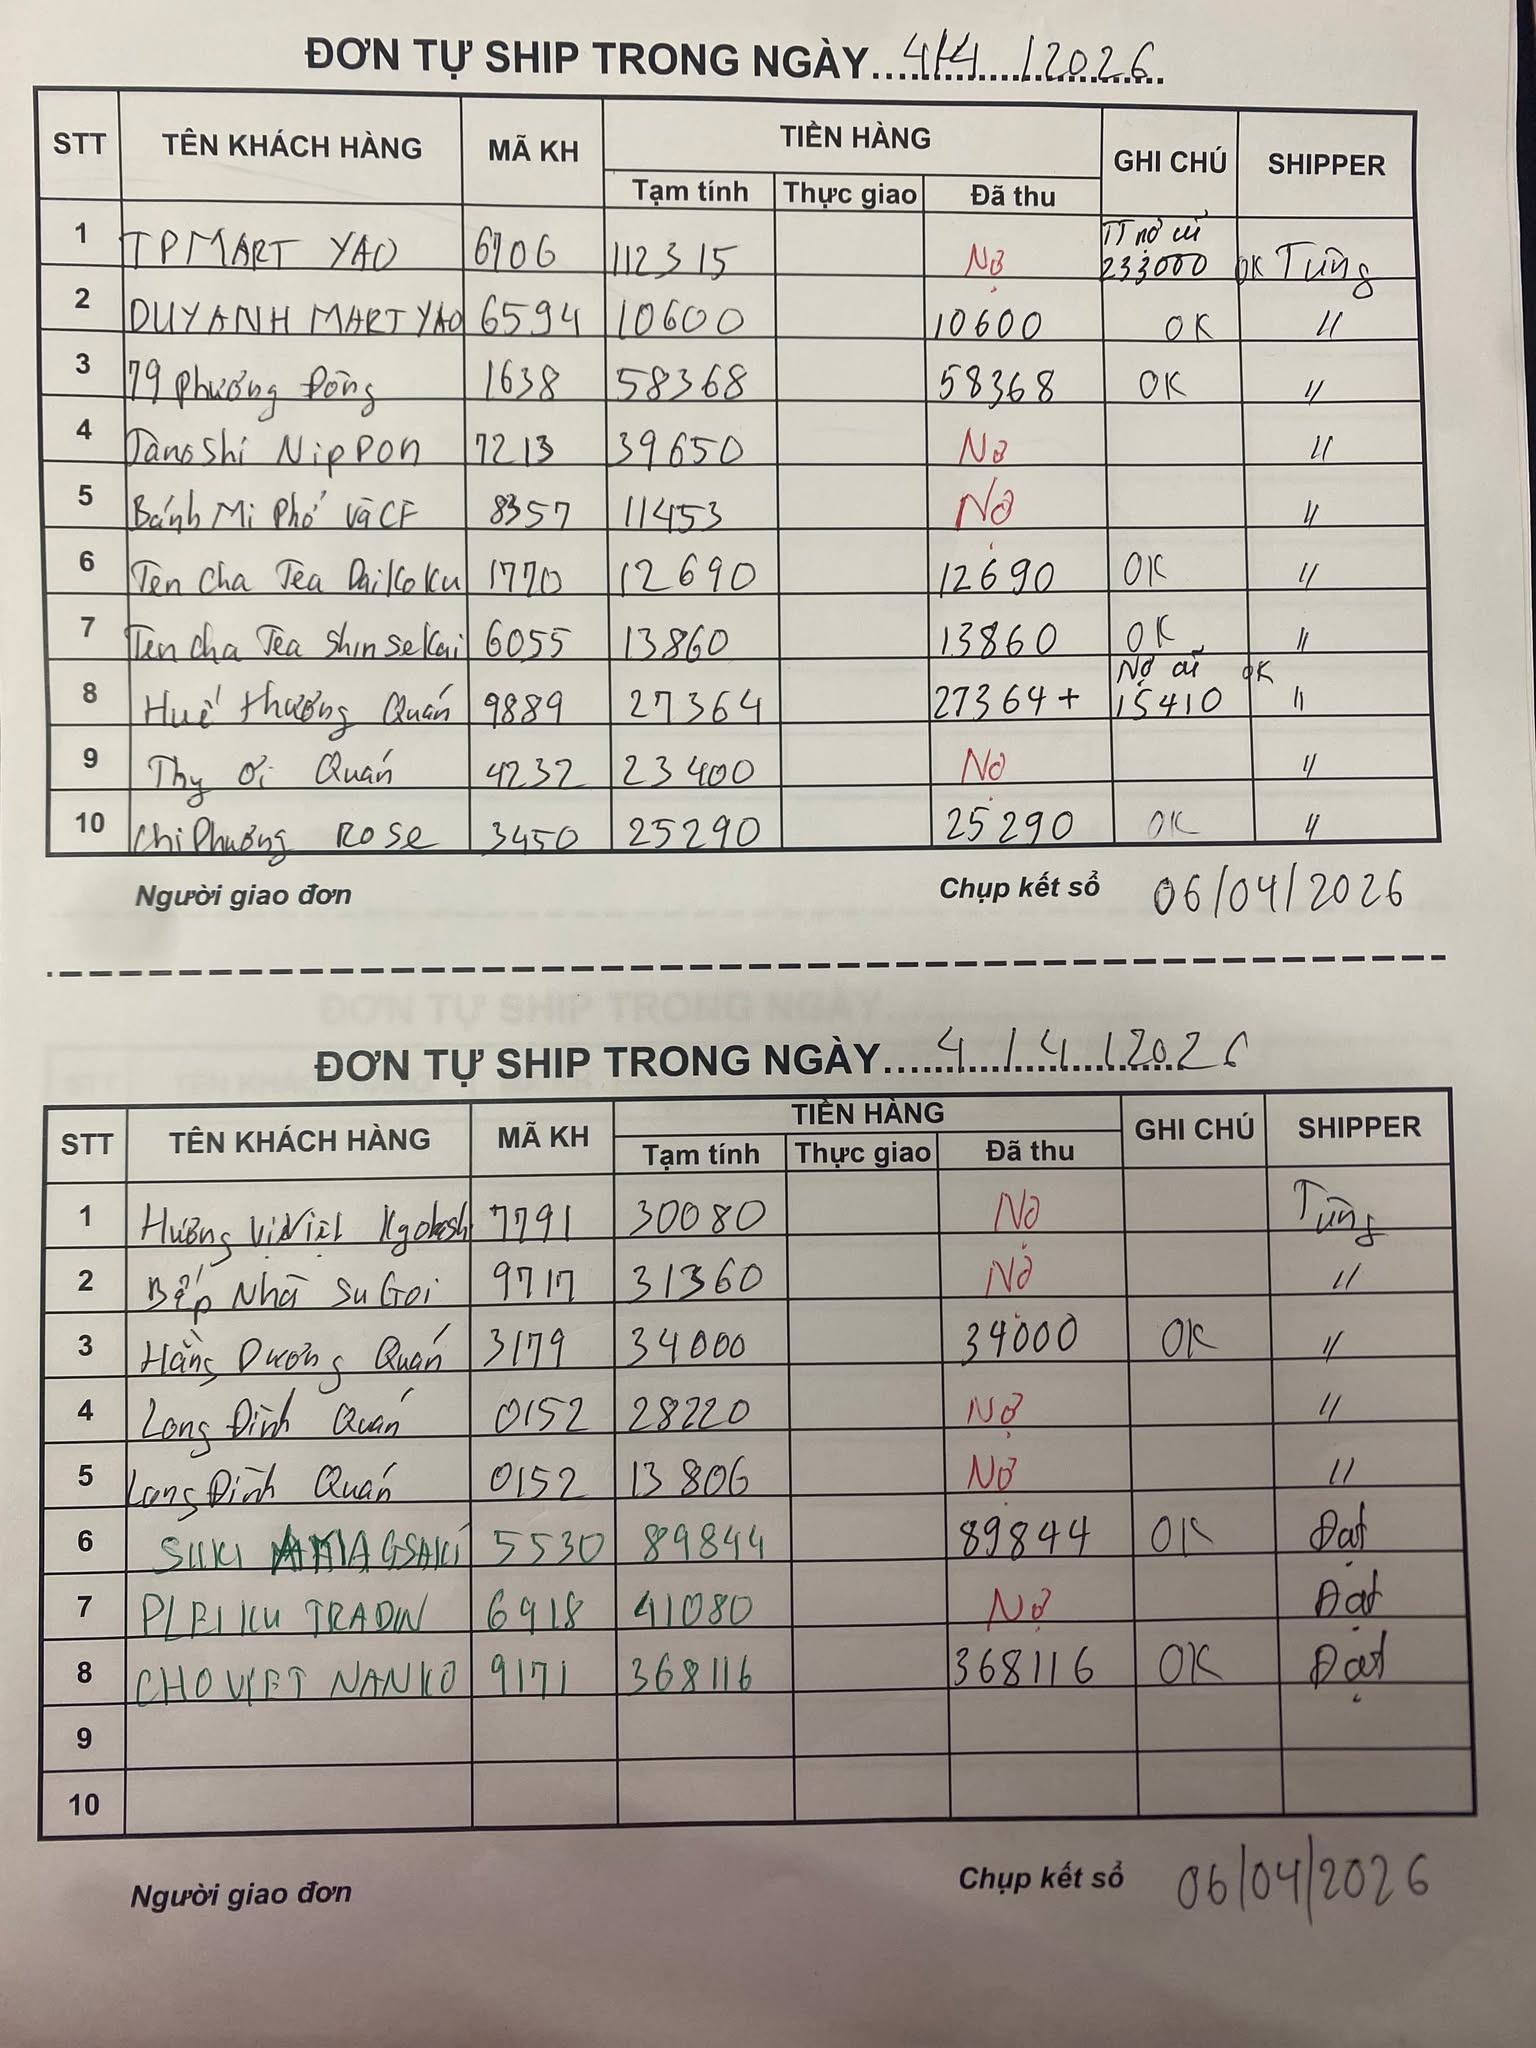 ĐƠN TỰ SHIP TRONG NGÀY 4/4/2026
STT TÊN KHÁCH HÀNG MÃ KH TIỀN HÀNG GHI CHÚ SHIPPER
Tạm tính Thực giao Đã thu
1 TPMART YAO 6706 112315 Nợ TT nợ cũ 233000 OK Tùng
2 DUYANH MART YAO 6594 10600 10600 OK "
3 79 Phương Đông 1638 58368 58368 OK "
4 Tanoshi Nippon 7213 39650 Nợ "
5 Bánh Mì Phố và CF 8357 11453 Nợ "
6 Ten cha Tea Daikoku 1770 12690 12690 OK "
7 Ten cha Tea Shinsekai 6055 13860 13860 OK "
8 Huế thương Quán 9889 27364 27364 + Nợ cũ 15410 OK "
9 Thy ơi Quán 4232 23400 Nợ "
10 Chị Phương Rose 3450 25290 25290 OK "
Người giao đơn Chụp kết sổ 06/04/2026
ĐƠN TỰ SHIP TRONG NGÀY 4/4/2026
STT TÊN KHÁCH HÀNG MÃ KH TIỀN HÀNG GHI CHÚ SHIPPER
Tạm tính Thực giao Đã thu
1 Hương Vị Việt 7791 30080 Nợ Tùng
2 Bếp Nhà SuGoi 9717 31360 Nợ "
3 Hằng Dương Quán 3179 34000 34000 OK "
4 Long Đình Quán 0152 28220 Nợ "
5 Long Đình Quán 0152 13806 Nợ "
6 SUKI 5530 89844 89844 OK Đạt
7 PLEIKU TRADIN 6918 41080 Nợ Đạt
8 CHO VIET NANKO 9171 368116 368116 OK Đạt
9
10
Người giao đơn Chụp kết sổ 06/04/2026